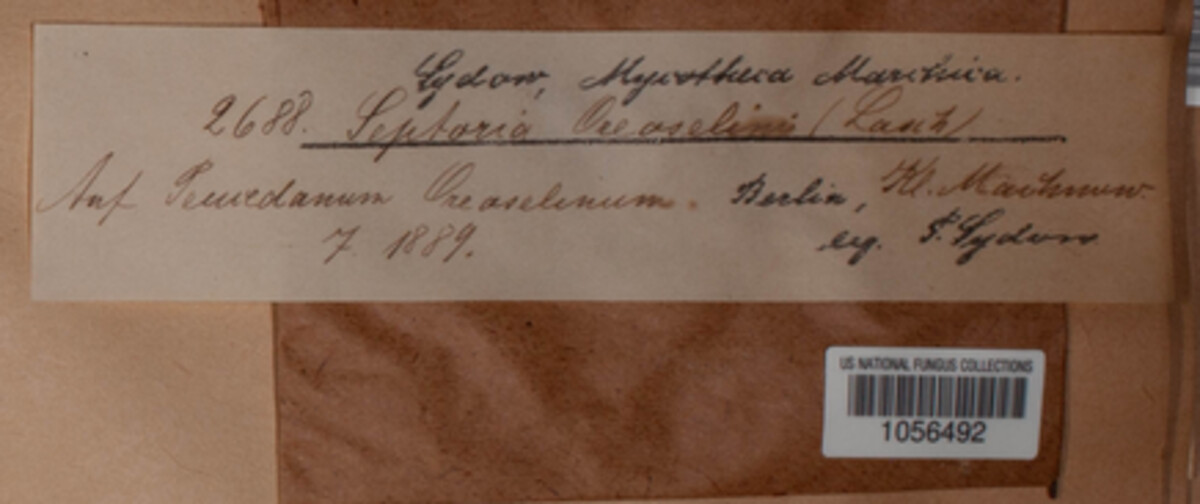 Sydow, Mycotheca Marchica.
2688. Septoria Oreoselini (Lasch)
Auf Peucedanum Oreoselinum. Berlin, Kl. Machnow.
7. 1889. leg. P. Sydow
US NATIONAL FUNGUS COLLECTIONS
1056492